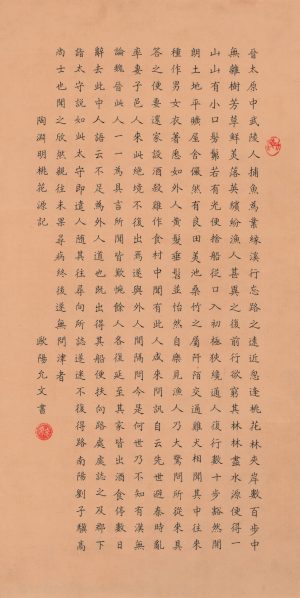 晉太原中武陵人捕魚為業緣溪行忘路之遠近忽逢桃花林夾岸數百步中
無雜樹芳草鮮美落英繽紛漁人甚異之復前行欲窮其林林盡水源便得一
山山有小口髣髴若有光便捨船從口入初極狹纔通人復行數十步豁然開
朗土地平曠屋舍儼然有良田美池桑竹之屬阡陌交通雞犬相聞其中往來
種作男女衣著悉如外人黃髮垂髫並怡然自樂見漁人乃大驚問所從來具
答之便要還家設酒殺雞作食村中聞有此人咸來問訊自云先世避秦時亂
率妻子邑人來此絕境不復出焉遂與外人間隔問今是何世乃不知有漢無
論魏晉此人一一為具言所聞皆歎惋餘人各復延至其家皆出酒食停數日
辭去此中人語云不足為外人道也既出得其船便扶向路處處誌之及郡下
詣太守說如此太守即遣人隨其往尋向所誌遂迷不復得路南陽劉子驥高
尚士也聞之欣然親往未果尋病終後遂無問津者
陶淵明桃花源記 歐陽允文書